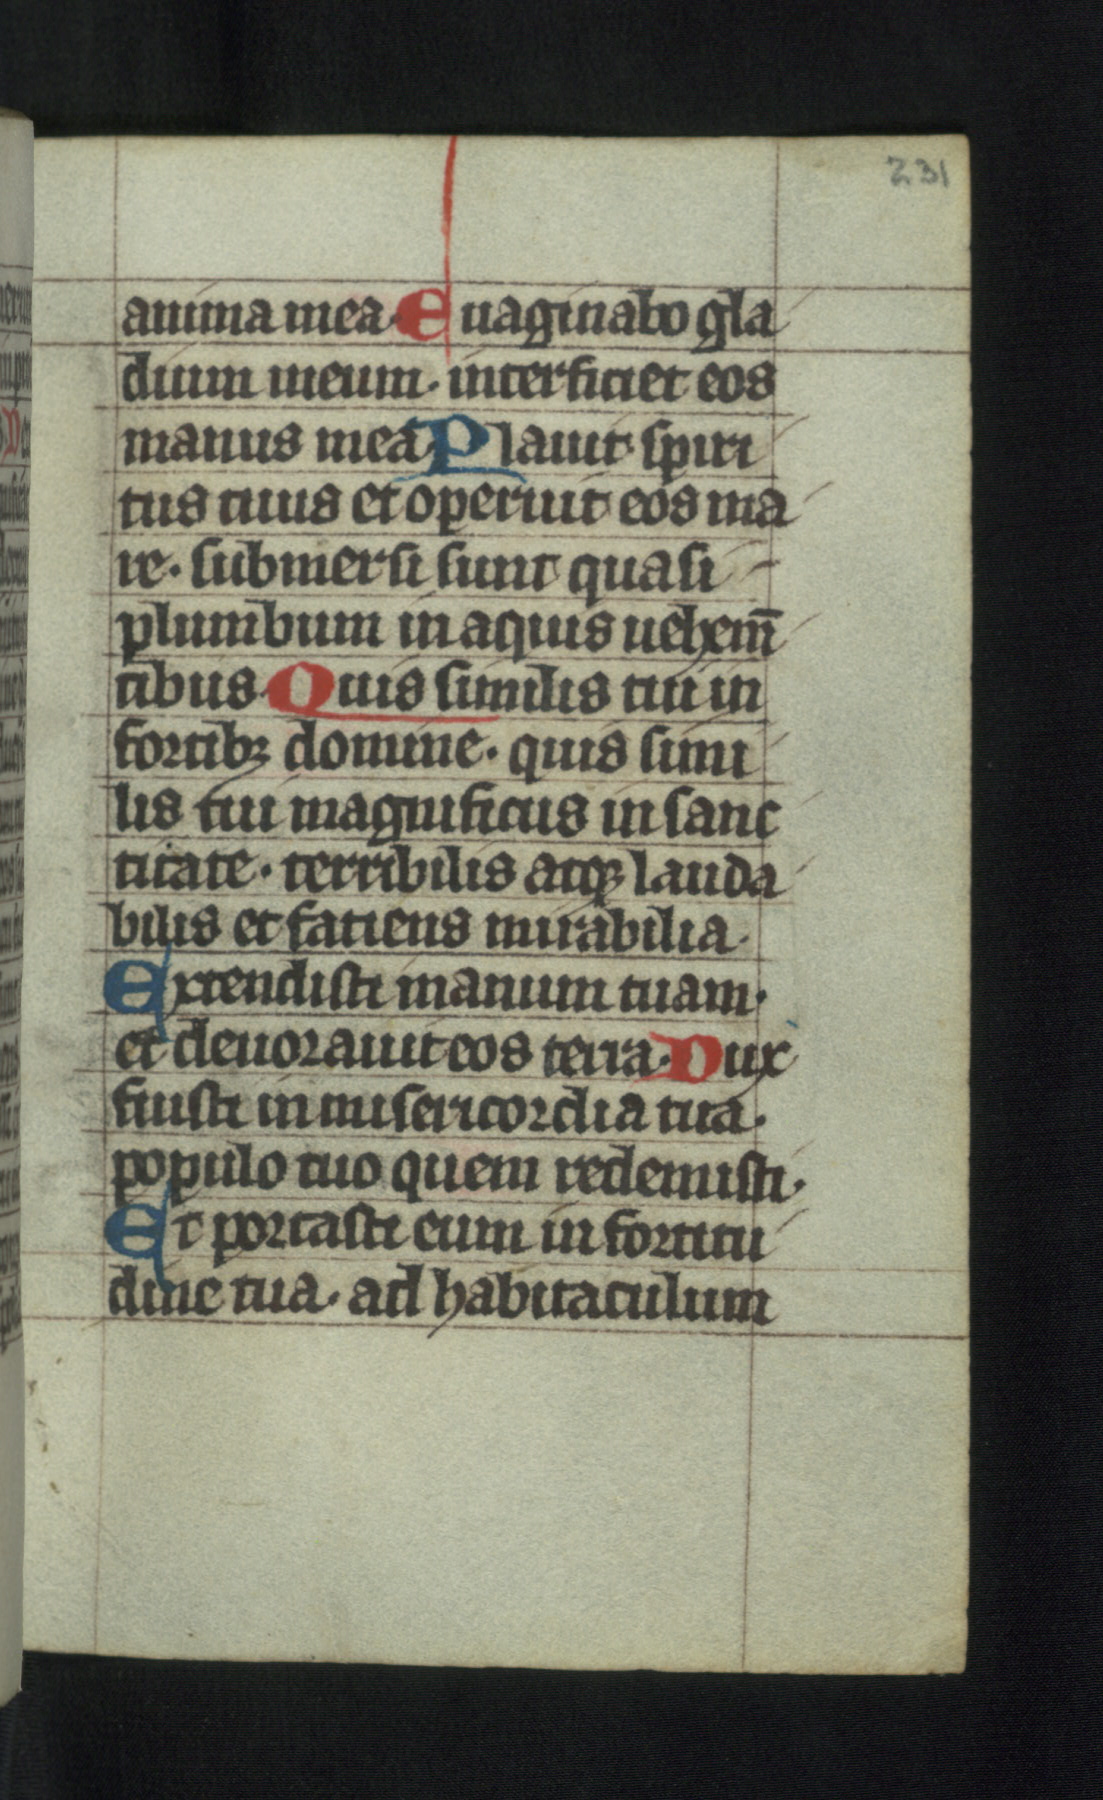 231
anima mea. Euaginabo gla
dium meum. interficiet eos
manus mea. Plauit spiri
tus tuus et operuit eos ma
re. submersi sunt quasi
plumbum in aquis uehem̅
tibus. Quis similis tui in
fortibꝫ domine. quis simi
lis tui magnificus in sanc
titate. terribilis atqꝫ lauda
bilis et fatiens mirabilia.
Extendisti manum tuam.
et deuorauit eos terra. Dux
fuisti in misericordia tua.
populo tuo quem redemisti.
Et portasti eum in fortitu
dine tua. ad habitaculum